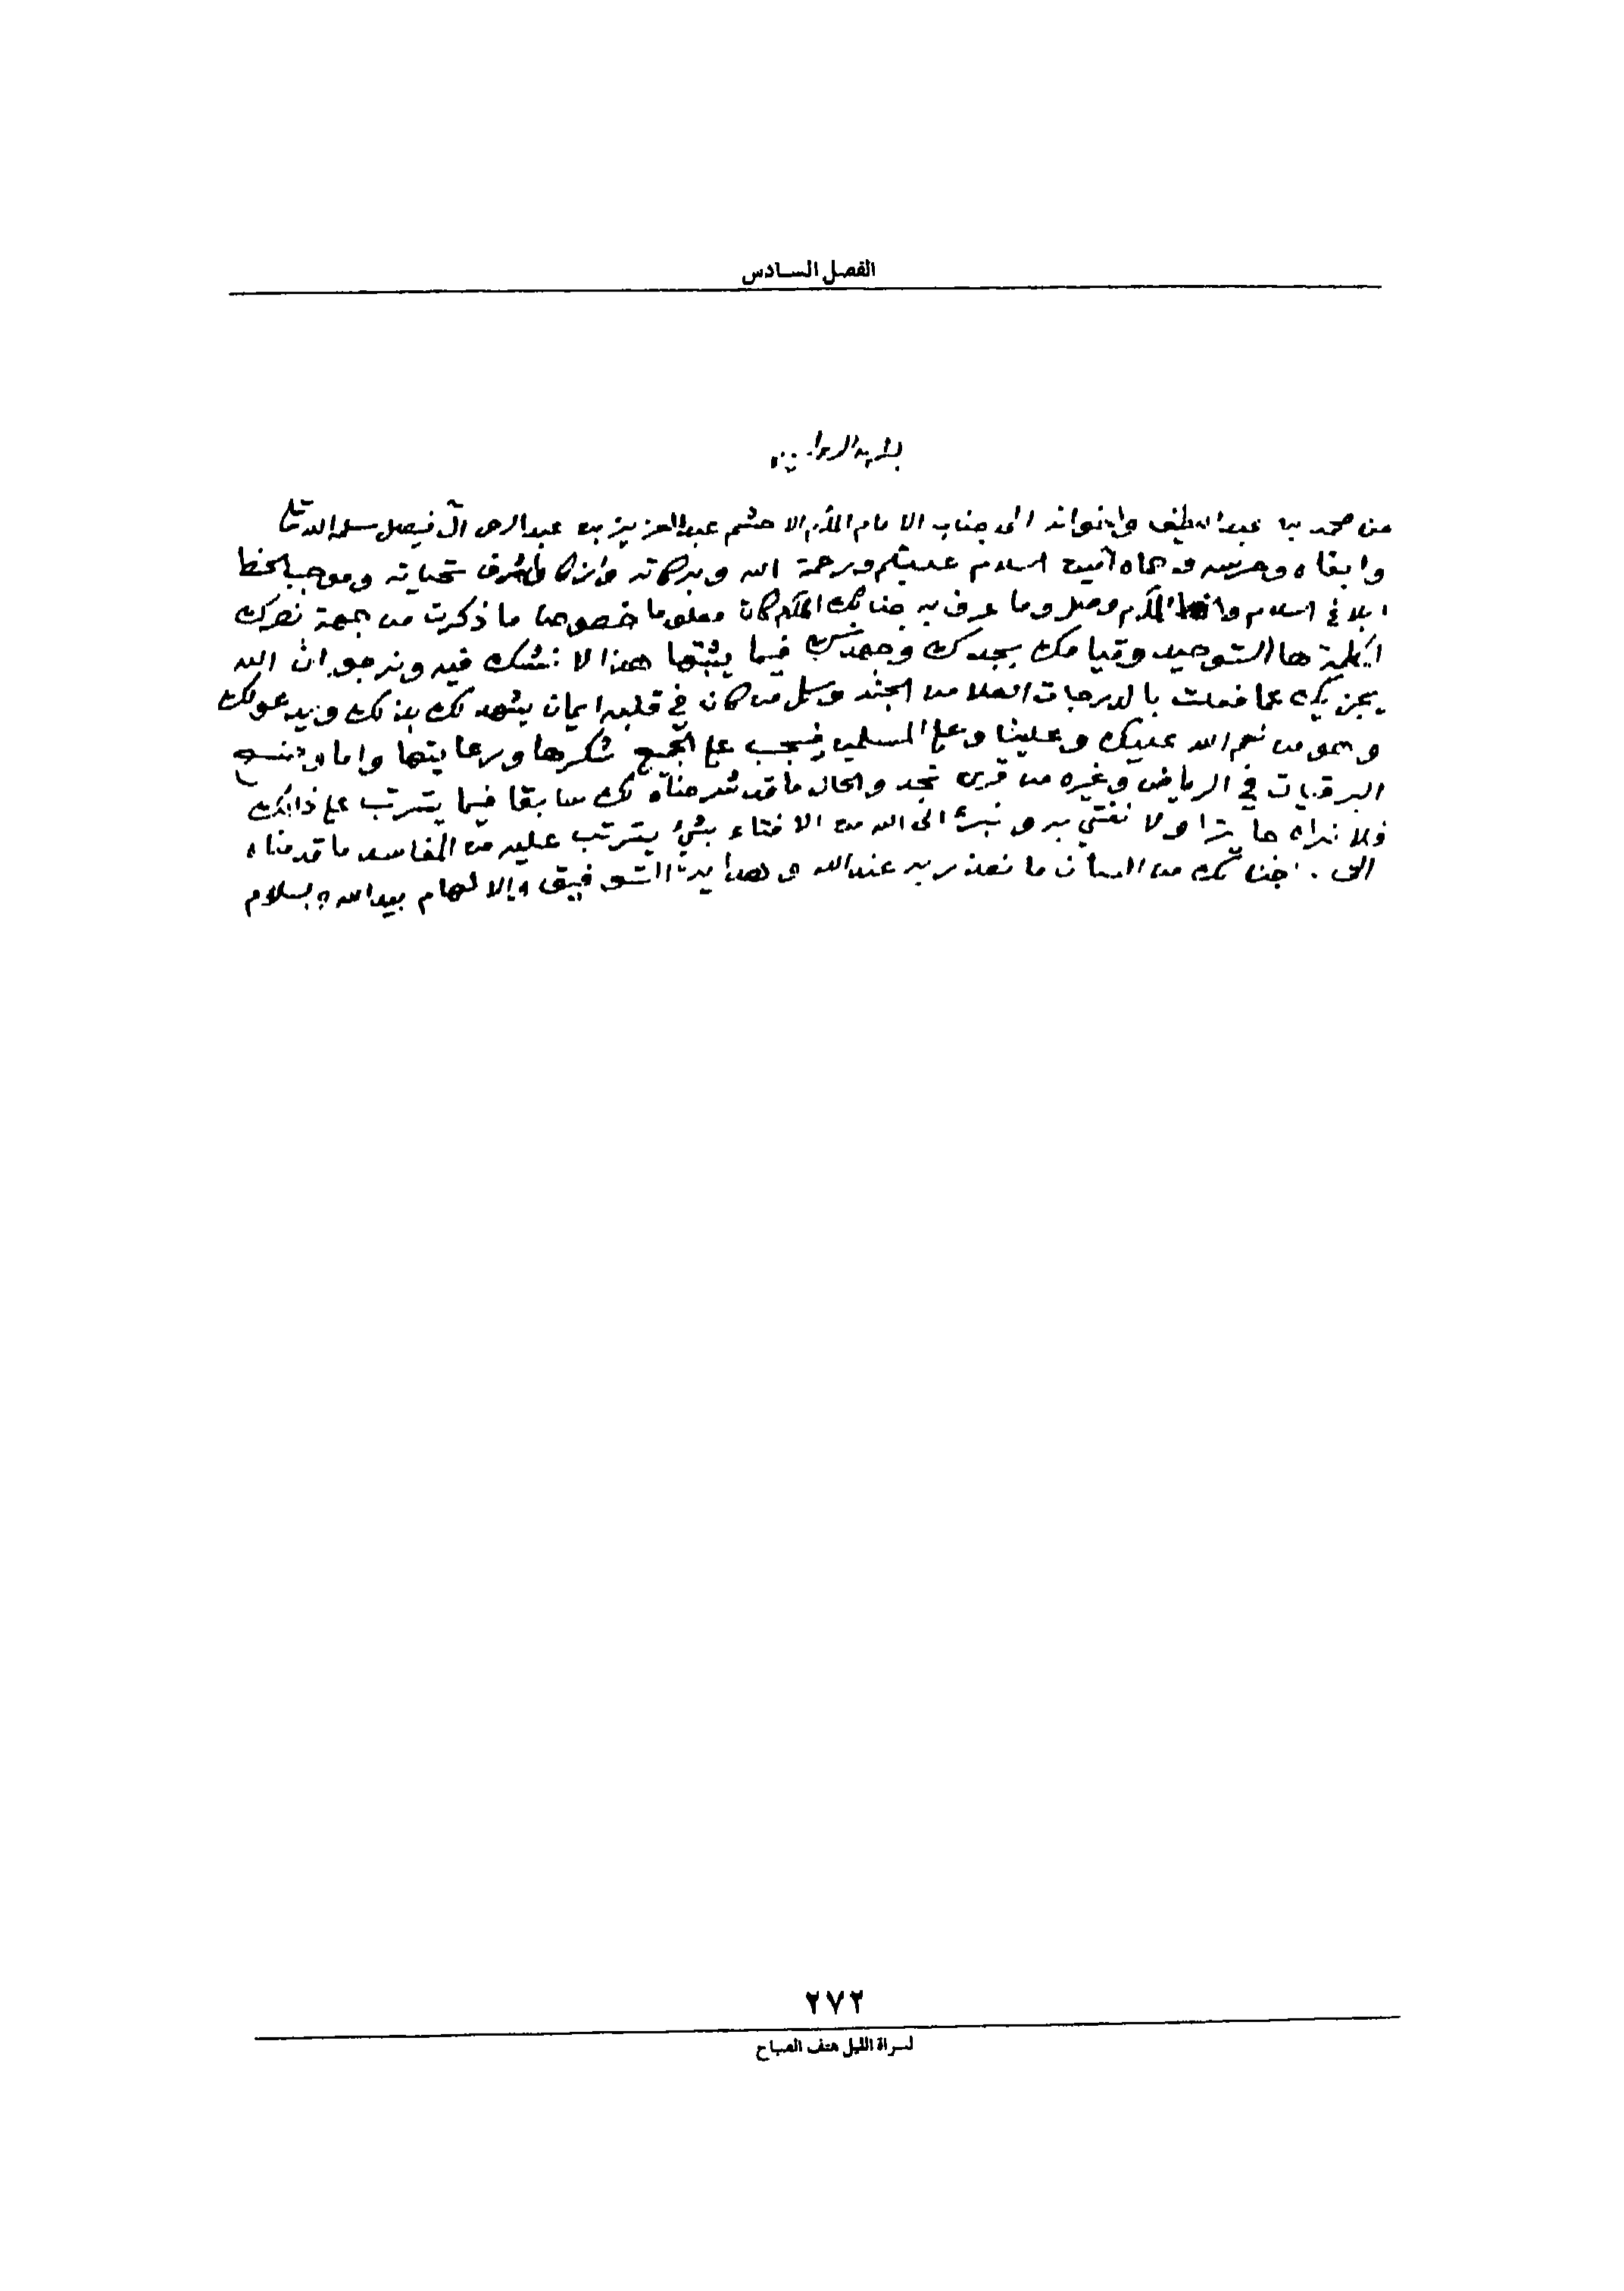 الفصل السادس
من محمد بن عبداللطيف واخوانه الى جناب الامام المكرم الاحشم عبدالعزيز بن عبدالرحمن آل فيصل سلمه الله تعالى
وابقاه وحرسه وحماه آمين السلام عليكم ورحمة الله وبركاته وازكا واشرف تحياته وموجب الخط
ابلاغ السلام والخط المكرم وصل وما عرف به جنابك المكرم كان معلوما خصوصا ما ذكرت من جهة نصرك
لكلمة هالتوحيد وقيامك بجدك وجهدك فيما يثبتها هذا لا نشك فيه ونرجو ان الله
يجزيك عما فعلت بالدرجات العلا من الجنة وكل من كان في قلبه ايمان يشهد لك بذلك ويدعولك
وهو من نعم الله عليك وعلينا وعلى المسلمين فيجب على الجميع شكرها ورعايتها واما
البرقيات في الرياض وغيره من قرى نجد والحال ما قد شرحناه لك سابقا فيما يترتب على ذالك
فلا نراه جايزا ولا نفتي به ونبرئ الى الله من الافتاء بشئ يترتب عليه من المفاسد ما قدمناه
الى جنابك من البيان ما نعذر به عند الله والهداية التوفيق والالهام بيد الله والسلام
٢٧٢
لسراة الليل هتف الصباح